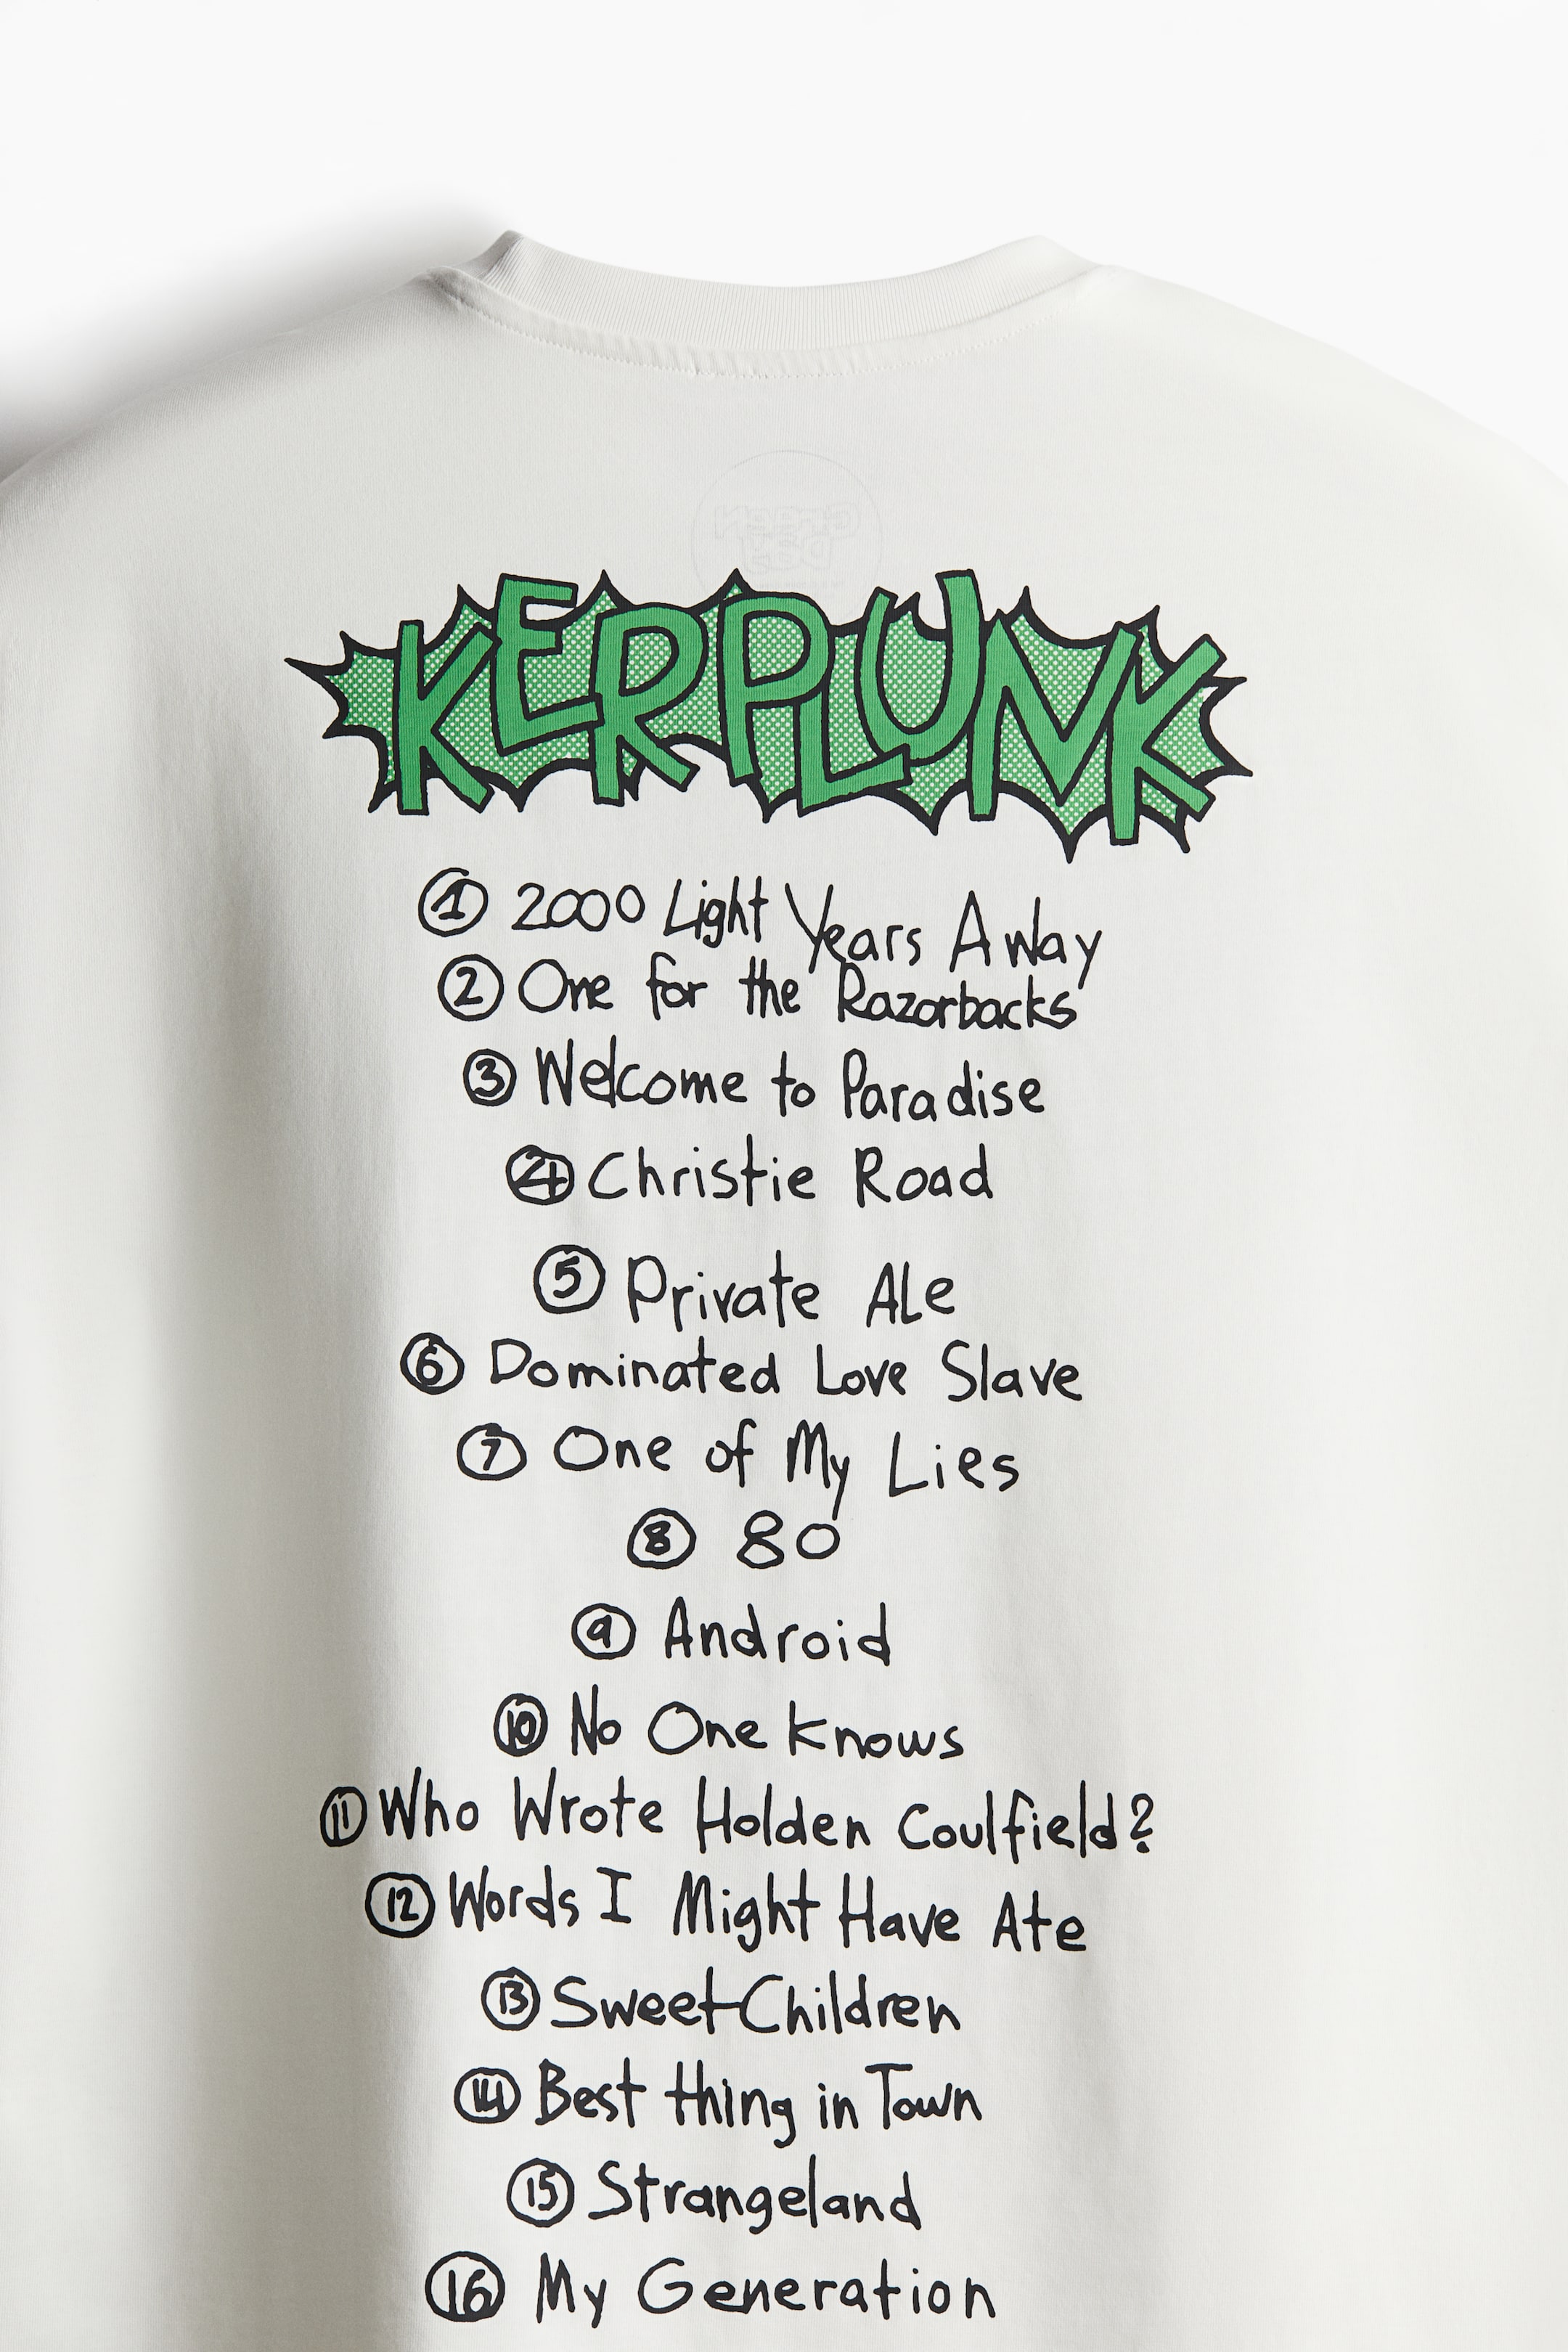 Green
Day
KERPLUNK
1 2000 Light Years Away
2 One for the Razorbacks
3 Welcome to Paradise
4 Christie Road
5 Private Ale
6 Dominated Love Slave
7 One of My Lies
8 80
9 Android
10 No One Knows
11 Who Wrote Holden Coulfield?
12 Words I Might Have Ate
13 Sweet Children
14 Best thing in Town
15 Strangeland
16 My Generation